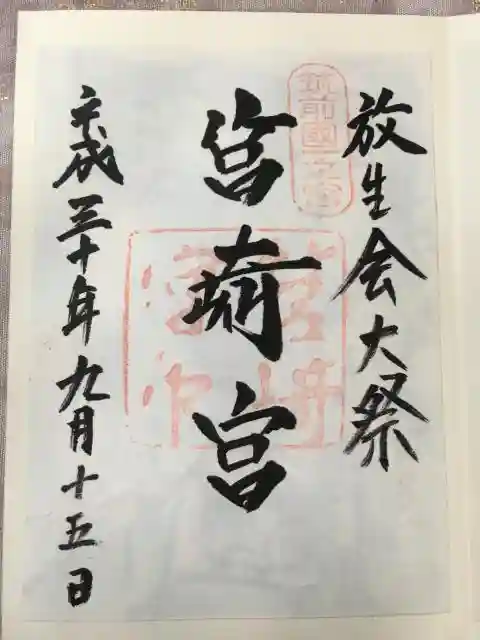 放生会大祭
筑前國一之宮
筥崎宮
平成三十年九月十五日